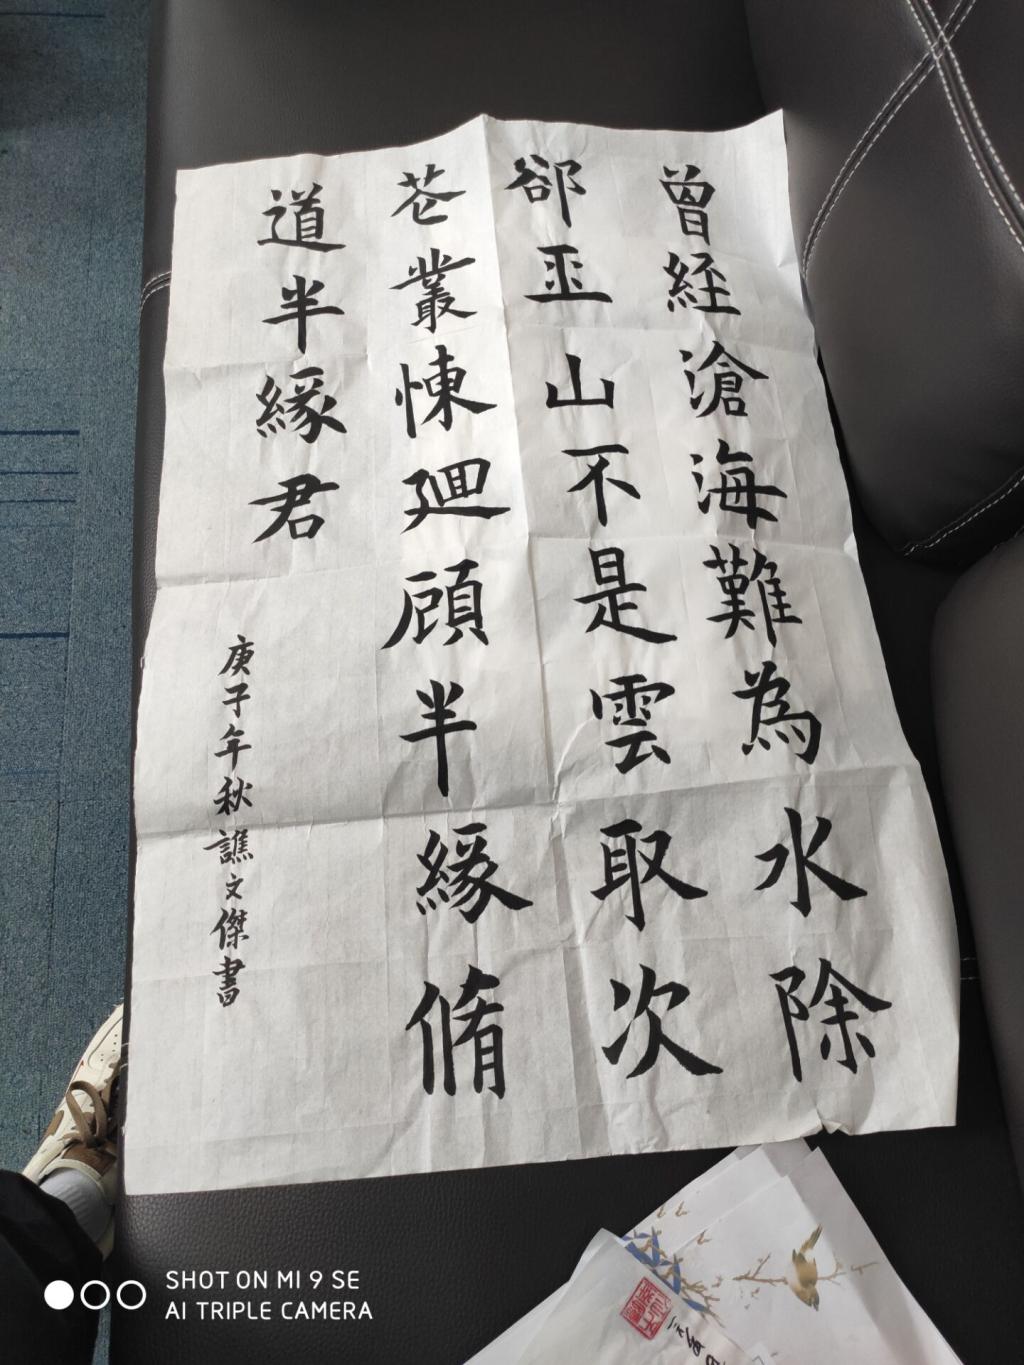 曾經滄海難為水除
卻巫山不是雲取次
花叢懶迴顧半緣脩
道半緣君
庚子年秋譙文傑書
SHOT ON MI 9 SE
AI TRIPLE CAMERA